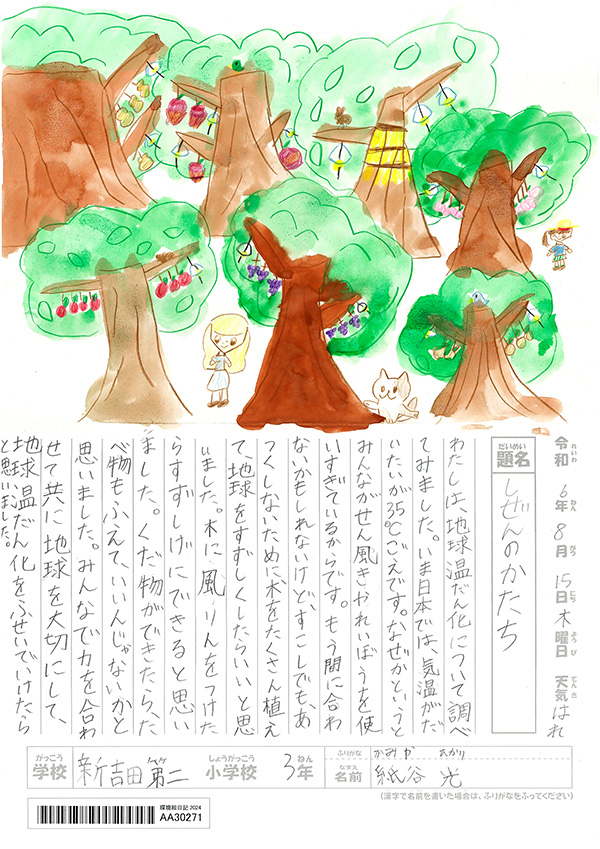 令和 れいわ 6年 ねん 8月 がつ 15日 にち 木曜日 ようび 天気 てんき はれ
だいめい 題名 しぜんのかたち
わたしは、地球温だん化について調べ
てみました。いま日本では、気温がだ
いたいが35℃ごえです。なぜかというと
みんながせん風きかれいぼうを使
いすぎているからです。もう間に合わ
ないかもしれないけど、すこしでも、あ
つくしないために木をたくさん植え
て、地球をすずしくしたらいいと思
いました。木に風りんをつけた
らすずしげにできると思い
ました。くだ物ができたら、た
べ物もふえて、いいんじゃないかと
思いました。みんなで力を合わ
せて共に地球を大切にして、
地球温だん化をふせいでいけたら
と思いました。
がっこう 学校 新吉田第二 しょうがっこう 小学校 3年 ねん
ふりがな かみや ひかり
なまえ 名前 紙谷 光
(漢字で名前を書いた場合は、ふりがなをふってください)
環境絵日記2024
AA30271